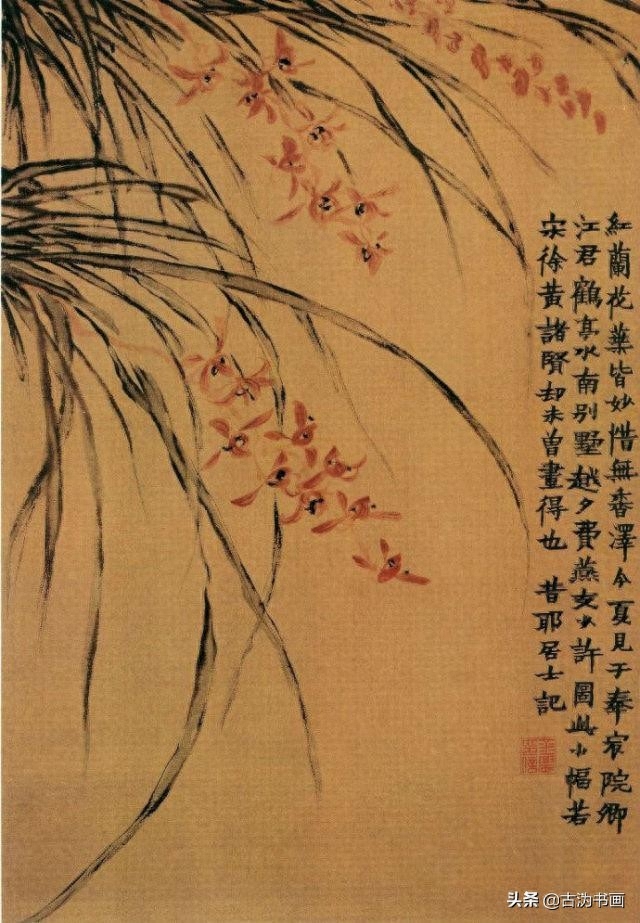 紅蘭花葉皆妙惜無香澤今夏見于奉宸院卿
江君鶴亭水南别墅越夕費燕支少許圖此小幅若
宋徐黃諸賢却未曾畫得也 昔耶居士記
头条 @古沩书画